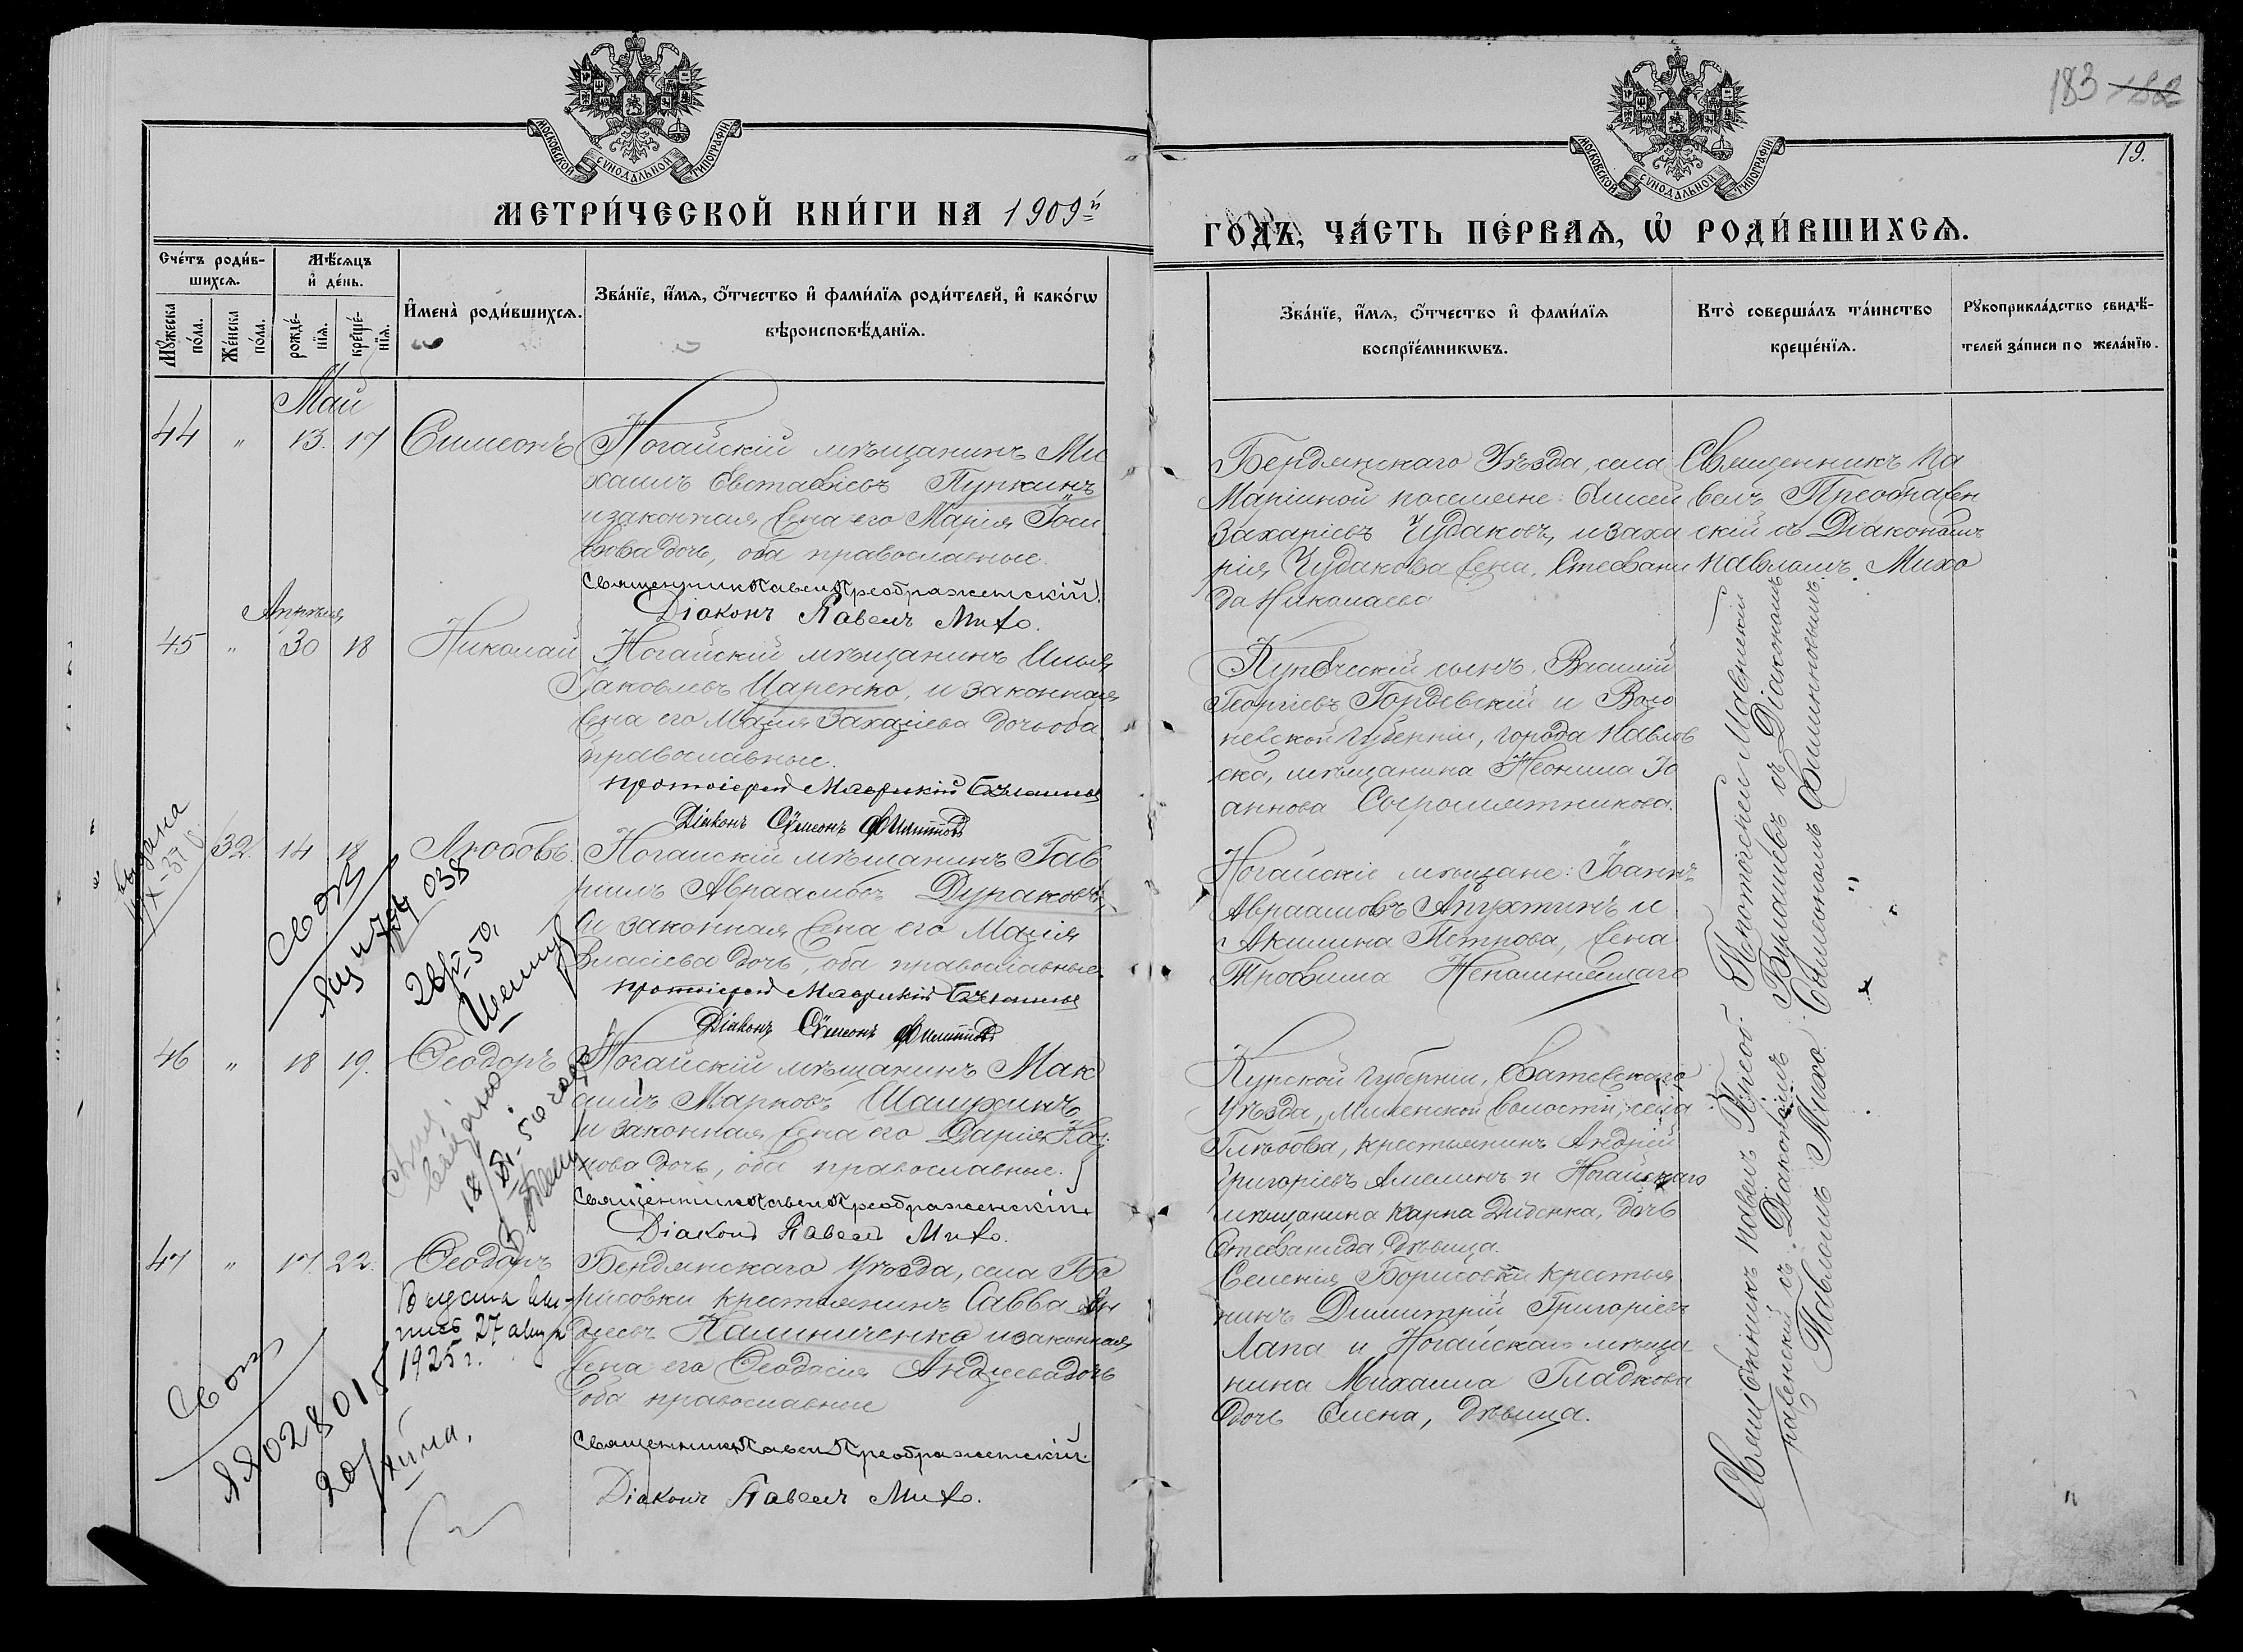 183 182
19.
МОСКОВСКОЙ СѴНОДАЛЬНОЙ ТИПОГРАФІИ
МОСКОВСКОЙ СѴНОДАЛЬНОЙ ТИПОГРАФІИ
МЕТРИ́ЧЕСКОЙ КНИ́ГИ НА 1909й
ГО́ДЪ, ЧА́СТЬ ПЕ́РВАѦ, Ѡ҆ РОДИ́ВШИХСѦ.
Сче́тъ роди́в-
шихсѧ.
Мꙋ́жеска по́ла.
Же́нска по́ла.
Мѣ́сѧцъ
и҆ де́нь.
рожде́-нїѧ.
креще́-нїѧ.
И҆мена̀ роди́вшихсѧ.
Зва́нїе, и҆́мѧ, ѻ҆́тчество и҆ фами́лїѧ роди́телей, и҆ како́гѡ
вѣроисповѣ́данїѧ.
Зва́нїе, и҆́мѧ, ѻ҆́тчество и҆ фами́лїѧ
воспрїе́мникѡвъ.
Кто̀ соверша́лъ та́инство
креще́нїѧ.
Рꙋкоприкла́дство свидѣ́-
телей за́писи по жела́нїю.
Май
44 " 13. 17 Симеонъ
Ногайскій мѣщанинъ Ми
хаилъ Евстафіевъ Пупкинъ
и законная жена его Марія Іоси
фова дочь, оба православные.
Священникъ Павелъ Преображенскій.
Діаконъ Павелъ Михо.
Бердянскаго Уѣзда, села
Маріиной поселяне: Алексѣй
Захаріевъ Чудаковъ, и Заха
рія Чудакова жена, Стефани
да Николаева
Священникъ Па
велъ Преображен
скій съ Діакономъ
Павломъ Михо
Апрѣля
45 " 30 18 Николай
Ногайскій мѣщанинъ Илья
Яковлевъ Царенко, и законная
жена его Марія Захаріева дочь оба
православные.
Протоіерей Маврикій
Діаконъ Сѵмеонъ Филипповъ
Купеческій сынъ Василій
Георгіевъ Гордѣевскій и Воро
нежской губерніи, города Павлов
ска, мѣщанина Неонила Іо
аннова Сыромятникова.
32. 14 18 Любовь.
Ногайскій мѣщанинъ Гав
риилъ Авраамовъ Дураковъ,
и законная жена его Марія
Власіева дочь, оба православные.
Протоіерей Маврикій
Діаконъ Сѵмеонъ Филипповъ
Ногайскіе мѣщане: Іоаннъ
Авраамовъ Апухтинъ и
Акилина Петрова, жена
Трофима Непомнящаго
выдана
28/V-50,
46 " 18 19. Ѳеодоръ
Ногайскій мѣщанинъ Мак
симъ Марковъ Шалухинъ
и законная жена его Дарія Кар
пова дочь, оба православные.
Священникъ Павелъ Преображенскій.
Діаконъ Павелъ Михо.
Курской губерніи, Фатежскаго
уѣзда, волости, села
Глѣбова, крестьянинъ Андрей
Григоріевъ Амелинъ и Ногайскаго
мѣщанина Карпа Диденка, дочь
Стефанида, дѣвица.
47 " 17. 22. Ѳеодоръ
Бердянскаго уѣзда, села Бо
рисовки крестьянинъ Савва Ан
дреевъ Калиниченко и законная
жена его Ѳеодосія Андреева дочь
оба православные
Священникъ Павелъ Преображенскій.
Діаконъ Павелъ Михо.
Селенія Борисовки крестья
нинъ Димитрій Григоріевъ
Лапа и Ногайскаго мѣща
нина Михаила Гладкова
дочь Елена, дѣвица.
Выдана вы-
пись 27 авгус
1925 г.
Протоіерей Маврикій
съ Діакономъ
Симеономъ Филипповымъ
Священникъ Павелъ Преоб
раженскій съ Діакономъ
Павломъ Михо.